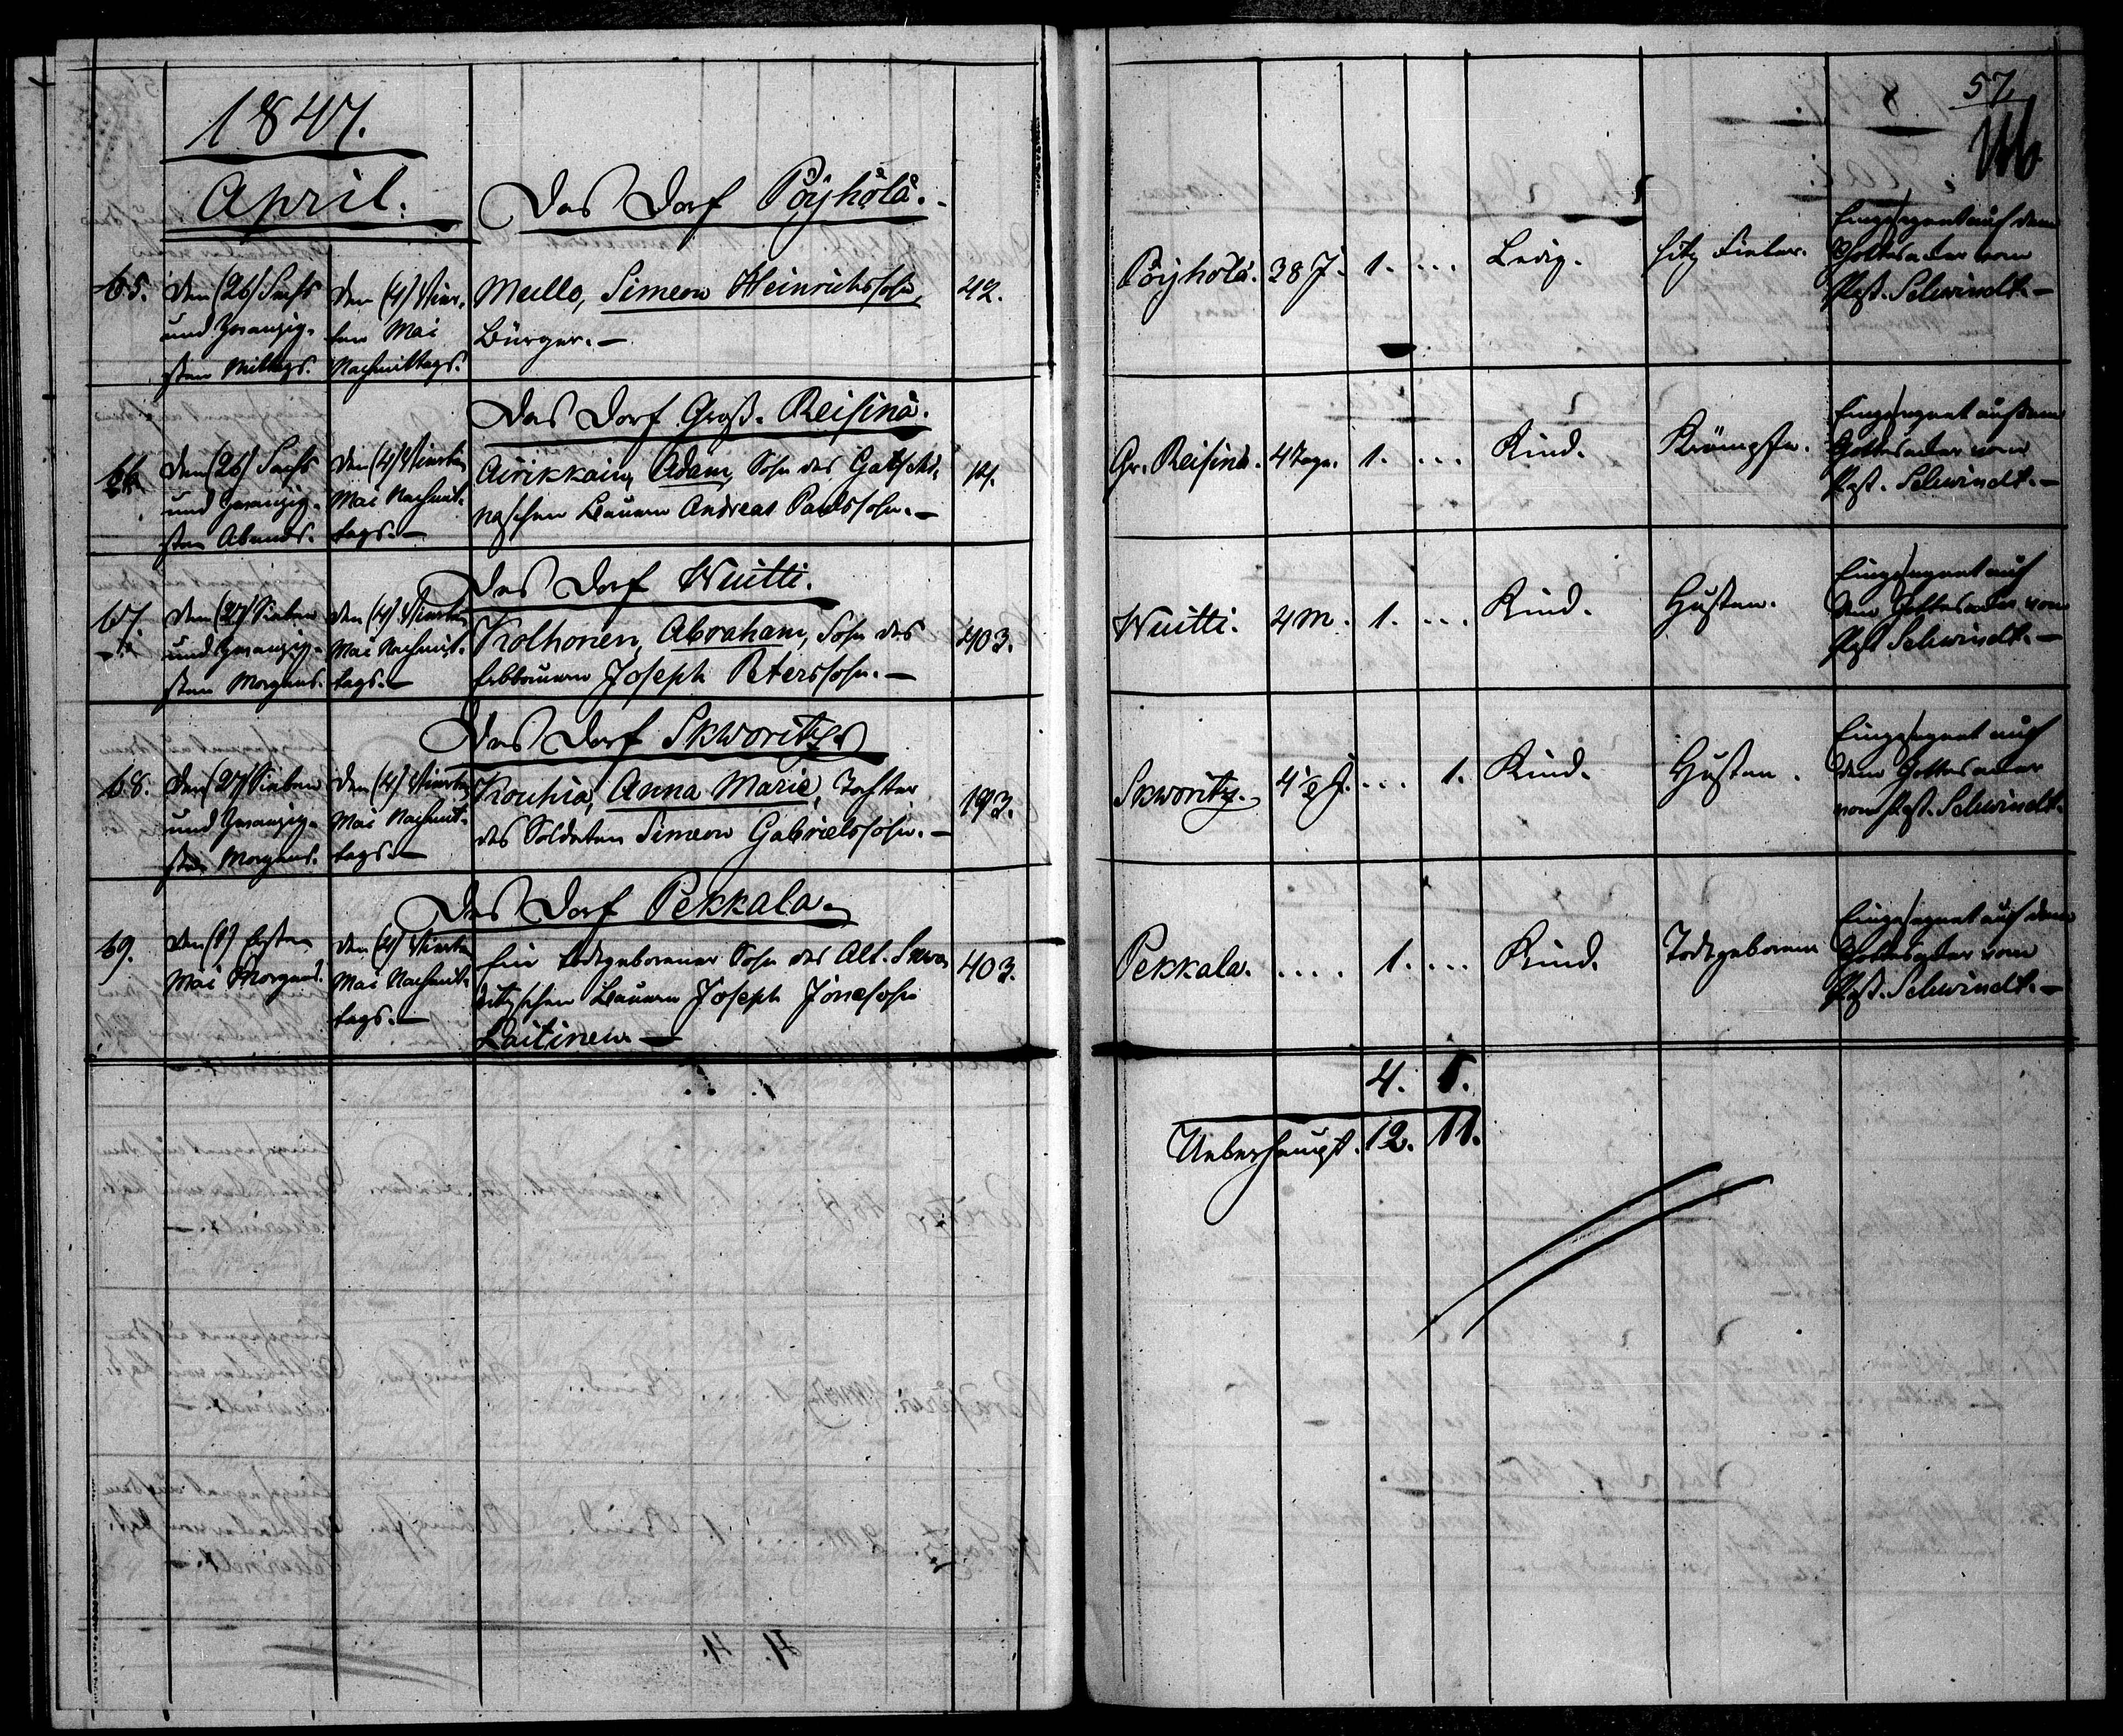 1847.
April.
57.
Das Dorf Pöyhölä.
65. den (26) Sechs den (4) Vier- Mullo, Simeon Heinrichssohn, 42. Pöyhölä. 38 J. 1. ... Ledig. hitz. Fieber. Eingesegnet auf dem
und zwanzig- ten Mai Bürger.— Gottesacker vom
sten Mittags. Nachmittags. Past. Schwindt.—
Das Dorf Groß-Reisinä.
66. den (26) Sechs den (4) Vierten Äirikkain, Adam, Sohn des Gatschi- 14. Gr. Reisinä. 4 Tage. 1. ... Kind. Krämpfe. Eingesegnet auf dem
und zwanzig- Mai Nachmit- naschen Bauern Andreas Paulssohn.— Gottesacker vom
sten Abends. tags.— Past. Schwindt.—
Das Dorf Wuitti.
67. den (27) Sieben den (4) Vierten Kolhonen, Abraham, Sohn des 403. Wuitti. 4 M. 1. ... Kind. Husten. Eingesegnet auf
und zwanzig- Mai Nachmit- Erbbauern Joseph Peterssohn.— dem Gottesacker vom
sten Morgens. tags.— Past. Schwindt.—
Das Dorf Skworitz
68. den (27) Sieben den (4) Vierten Kouhia, Anna Marie, Tochter 193. Skworitz. 4½ J. ... 1. Kind. Husten. Eingesegnet auf
und zwanzig- Mai Nachmit- des Soldaten Simeon Gabrielssohn.— dem Gottesacker
sten Morgens. tags.— vom Past. Schwindt.
Das Dorf Pekkala.
69. den (1) Ersten den (4) Vierten Ein todtgeborener Sohn des Alt-Skwo- 403. Pekkala. .... 1. ... Kind. Todtgeboren Eingesegnet auf dem
Mai Morgens. Mai Nachmit- ritzschen Bauern Joseph Jönssohn Gottesacker vom
tags.— Laitinen— Past. Schwindt.—
4. 1.
Ueberhaupt. 12. 11.